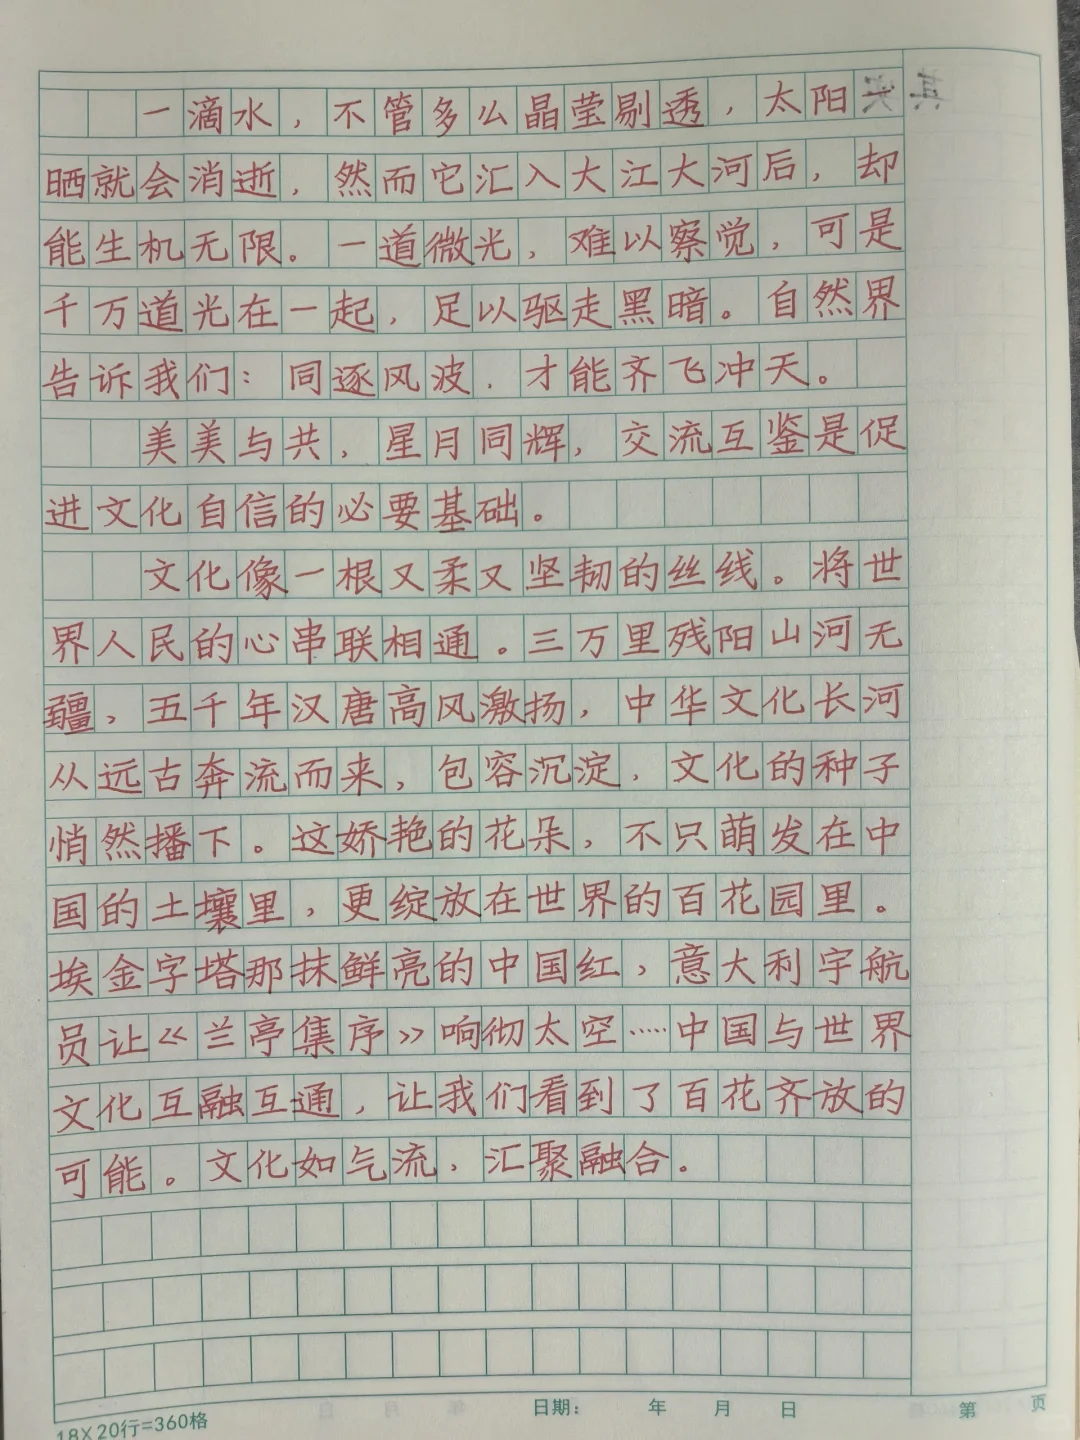 一滴水，不管多么晶莹剔透，太阳
晒就会消逝，然而它汇入大江大河后，却
能生机无限。一道微光，难以察觉，可是
千万道光在一起，足以驱走黑暗。自然界
告诉我们：同逐风波，才能齐飞冲天。
美美与共，星月同辉，交流互鉴是促
进文化自信的必要基础。
文化像一根又柔又坚韧的丝线。将世
界人民的心串联相通。三万里残阳山河无
疆，五千年汉唐高风激扬，中华文化长河
从远古奔流而来，包容沉淀，文化的种子
悄然播下。这娇艳的花朵，不只萌发在中
国的土壤里，更绽放在世界的百花园里。
埃金字塔那抹鲜亮的中国红，意大利宇航
员让《兰亭集序》响彻太空……中国与世界
文化互融互通，让我们看到了百花齐放的
可能。文化如气流，汇聚融合。
18×20行=360格
日期：　年　月　日
第　页